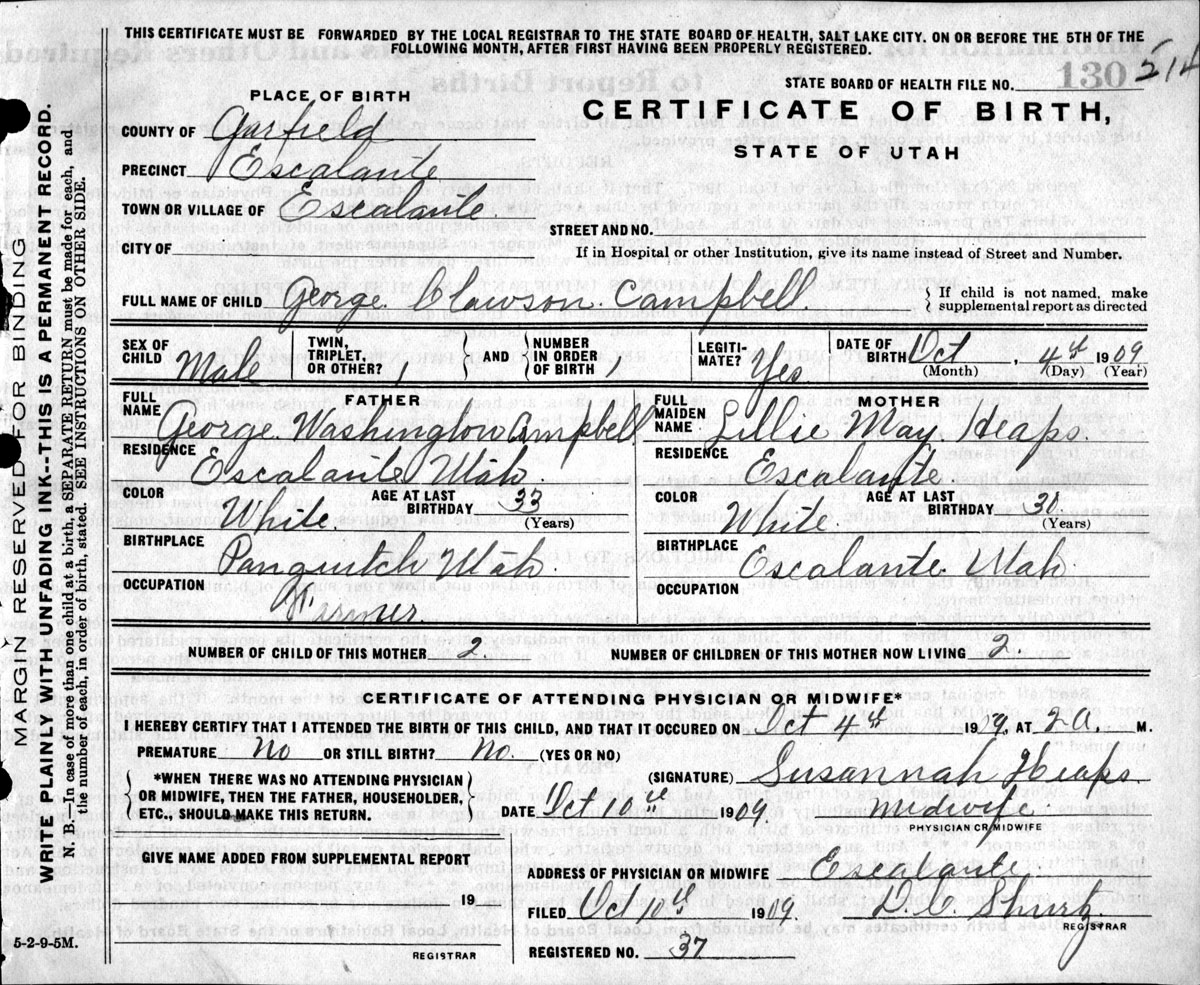 THIS CERTIFICATE MUST BE FORWARDED BY THE LOCAL REGISTRAR TO THE STATE BOARD OF HEALTH, SALT LAKE CITY. ON OR BEFORE THE 5TH OF THE
FOLLOWING MONTH, AFTER FIRST HAVING BEEN PROPERLY REGISTERED.
STATE BOARD OF HEALTH FILE NO. 130 214
PLACE OF BIRTH
CERTIFICATE OF BIRTH,
STATE OF UTAH
COUNTY OF Garfield
PRECINCT Escalante
TOWN OR VILLAGE OF Escalante.
STREET AND NO.
CITY OF
If in Hospital or other Institution, give its name instead of Street and Number.
FULL NAME OF CHILD George Clawson Campbell
If child is not named, make
supplemental report as directed
SEX OF CHILD Male
TWIN, TRIPLET, OR OTHER? 1
AND NUMBER IN ORDER OF BIRTH 1
LEGITIMATE? Yes.
DATE OF BIRTH Oct, 4th 1909
(Month) (Day) (Year)
FATHER
FULL NAME George Washington Campbell
RESIDENCE Escalante Utah
COLOR White.
AGE AT LAST BIRTHDAY 33
(Years)
BIRTHPLACE Panguitch Utah
OCCUPATION Farmer
MOTHER
FULL MAIDEN NAME Lillie May Heaps.
RESIDENCE Escalante
COLOR White.
AGE AT LAST BIRTHDAY 30.
(Years)
BIRTHPLACE Escalante Utah
OCCUPATION
NUMBER OF CHILD OF THIS MOTHER 2.
NUMBER OF CHILDREN OF THIS MOTHER NOW LIVING 2
CERTIFICATE OF ATTENDING PHYSICIAN OR MIDWIFE*
I HEREBY CERTIFY THAT I ATTENDED THE BIRTH OF THIS CHILD, AND THAT IT OCCURED ON Oct 4th 1909, AT 2 a. M.
PREMATURE No OR STILL BIRTH? No. (YES OR NO)
*WHEN THERE WAS NO ATTENDING PHYSICIAN
OR MIDWIFE, THEN THE FATHER, HOUSEHOLDER,
ETC., SHOULD MAKE THIS RETURN.
(SIGNATURE) Susannah Heaps
DATE Oct 10th 1909. Midwife
PHYSICIAN OR MIDWIFE
GIVE NAME ADDED FROM SUPPLEMENTAL REPORT
19
REGISTRAR
ADDRESS OF PHYSICIAN OR MIDWIFE Escalante
FILED Oct 10th 1909. Shurtz
REGISTRAR
REGISTERED NO. 37
5-2-9-5M.
MARGIN RESERVED FOR BINDING
WRITE PLAINLY WITH UNFADING INK--THIS IS A PERMANENT RECORD.
N. B.--In case of more than one child at a birth, a SEPARATE RETURN must be made for each, and
the number of each, in order of birth, stated. SEE INSTRUCTIONS ON OTHER SIDE.